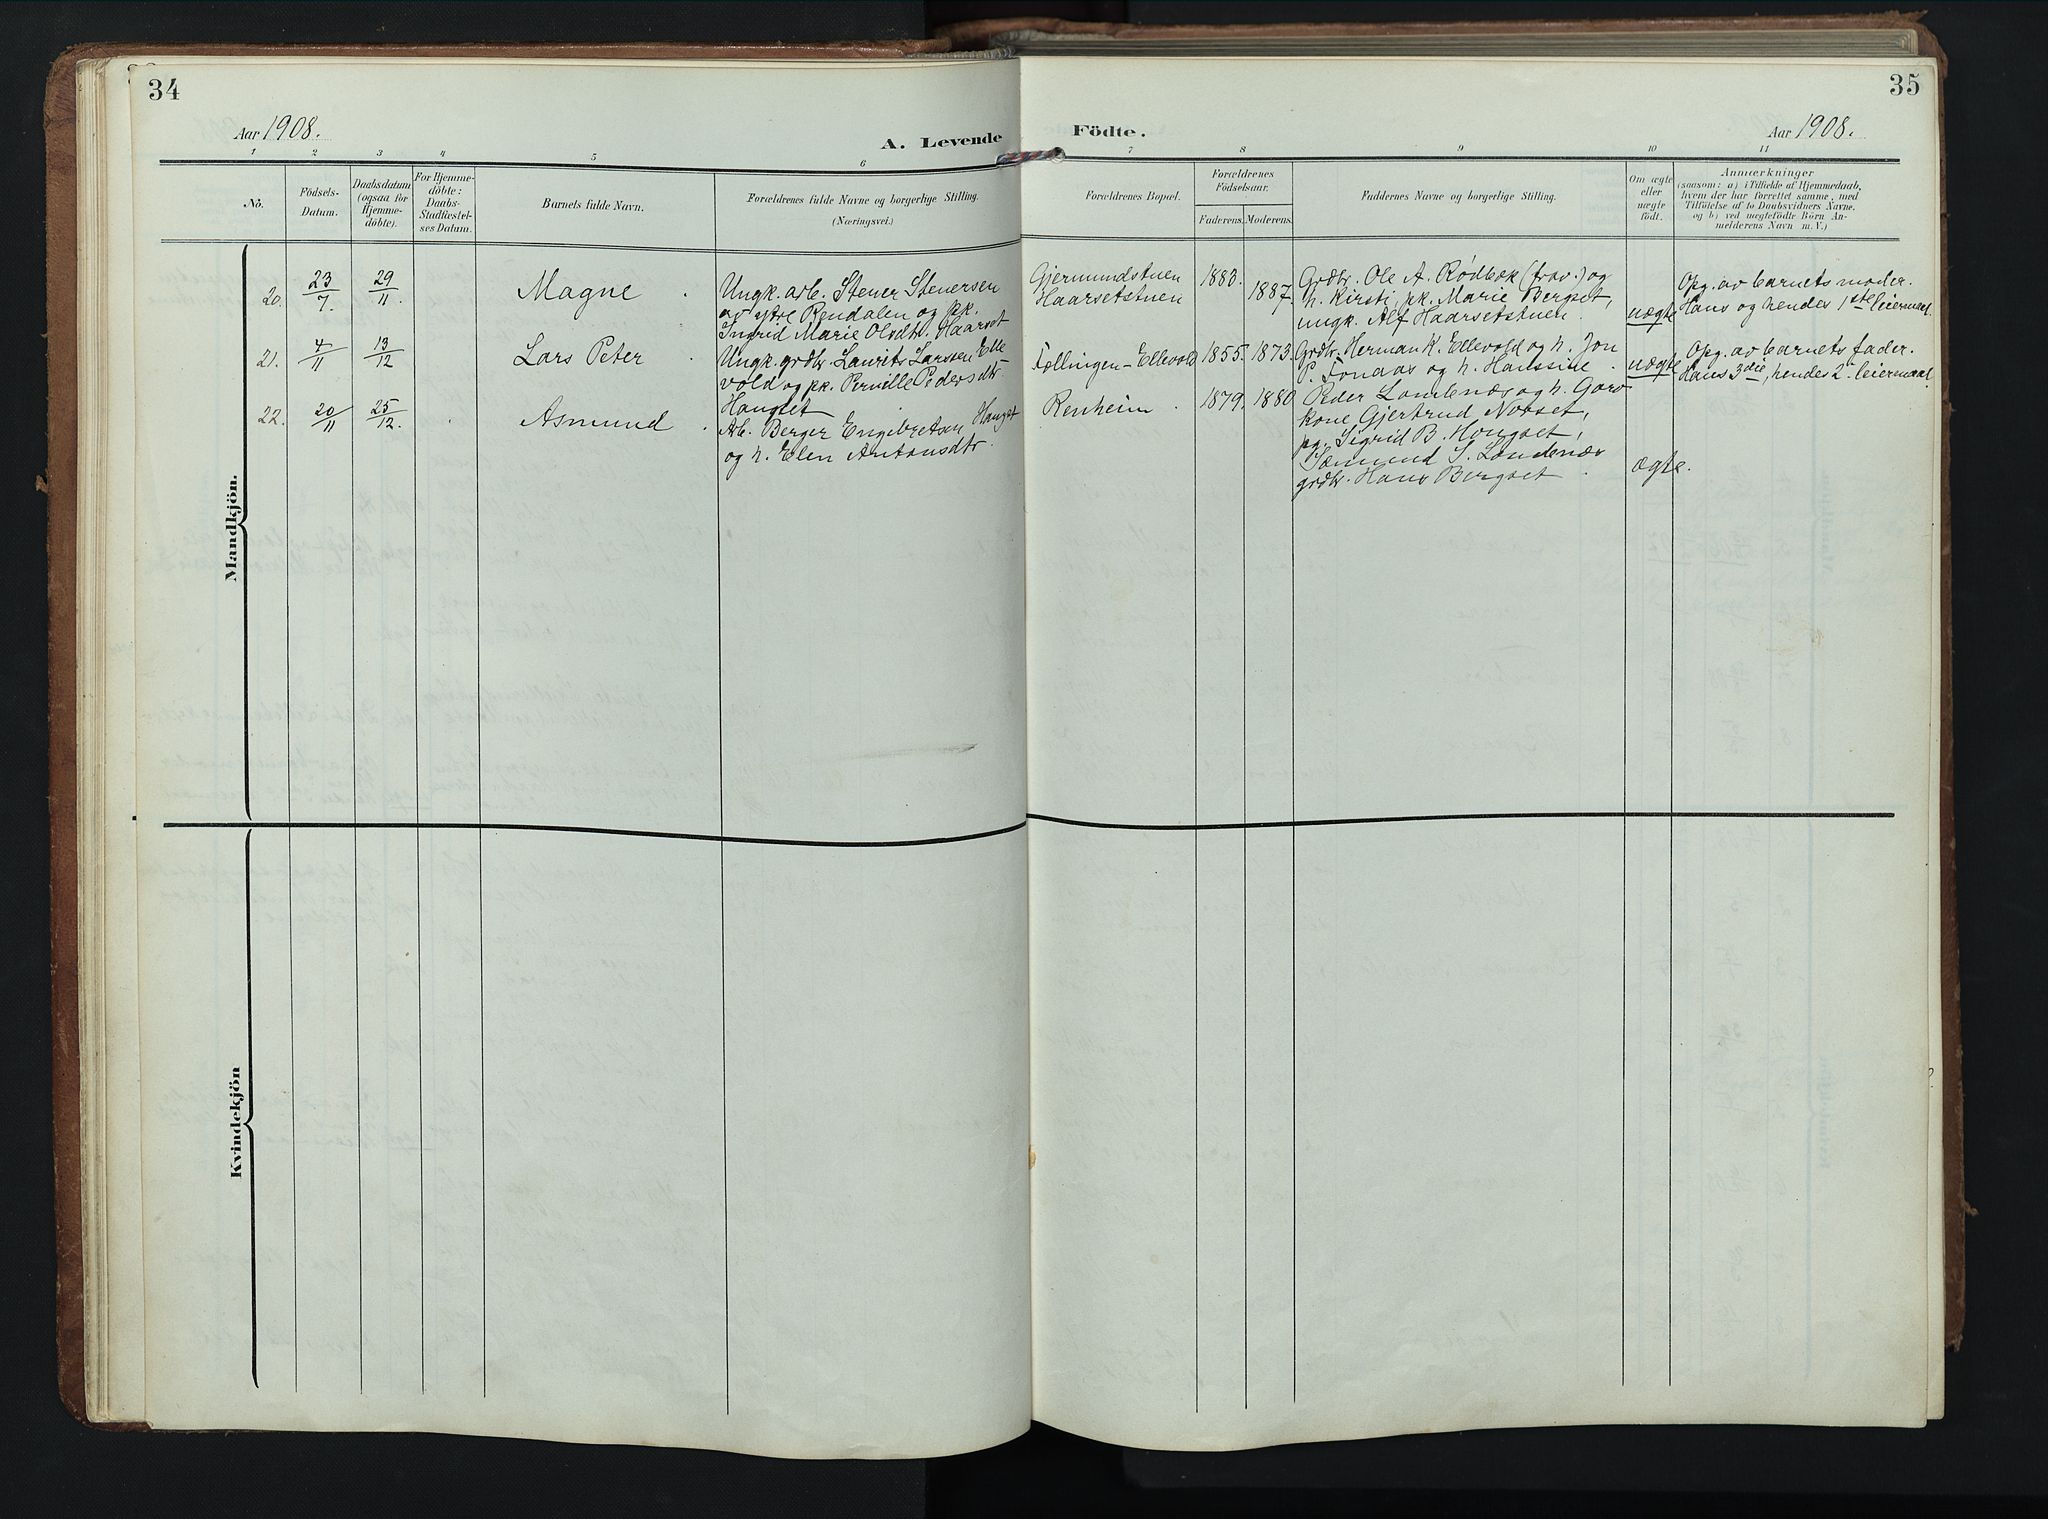 34
35
Aar 1908.
A. Levende
Födte.
Aar 1908.
1 2 3 4 5 6 7 8 9 10 11
Nö.
Födsels-
Datum.
Daabsdatum
(ogsaa for
Hjemme-
döbte).
For Hjemme-
döbte:
Daabs-
Stadfæstel-
ses Datum.
Barnets fulde Navn.
Forældrenes fulde Navne og borgerlige Stilling.
(Næringsvei.)
Forældrenes Bopæl.
Forældrenes
Födselsaar.
Faderens. Moderens.
Faddernes Navne og borgerlige Stilling.
Om ægte
eller
uægte
födt.
Anmærkninger
(saasom: a) i Tilfælde af Hjemmedaab,
hvem der har forrettet samme, med
Tilföielse af to Daabsvidners Navne.
og b) ved uægtefödte Börn An-
melderens Navn m. V.)
Mandkjön.
20. 23/7. 29/11. Magne
Ungk. arb. Stener Stenersen
av ytre Rendalen og pk.
Ingrid Marie Olsdtr. Haarset
Gjermundstuen
Haarsetstuen
1883. 1887.
Grdbr. Ole A. Rødbæk (frav.) og
h. Kirsti, pk. Marie Bergset,
ungk. Alf Haarsetstuen.
uægte
Opg. av barnets moder.
Hans og hendes 1ste leiermaal.
21. 4/11 13/12 Lars Peter
Ungk. grdbr. Laurits Larssen Elle
vold og pk. Pernille Pedersdtr
Haugset
Føllingen - Ellevold
1855. 1873.
Grdbr. Herman K. Ellevold og h. Jon
P. Fonaas og h. Hanssine.
uægte
Opg. av barnets fader.
Hans 3die, hendes 2t leiermaal
22. 20/11 25/12. Asmund
Arb. Berger Engebretsen Haugset
og h. Elen Antonsdtr.
Renheim.
1879. 1880.
Peder Londenæs og h. Garo
kone Gjertrud Nordset,
pg. Sigrid B. Hongset,
Sæmund S. Londenæs
grdbr. Hans Bergset.
ægte.
Kvindekjön